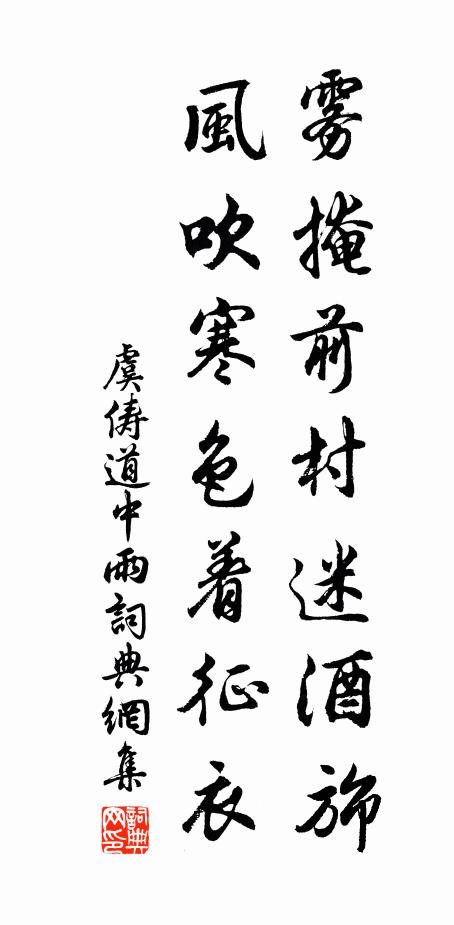 雾掩前村迷酒旆
風吹寒色着征衣
虞儔道中雨詞典網集
詞典网印